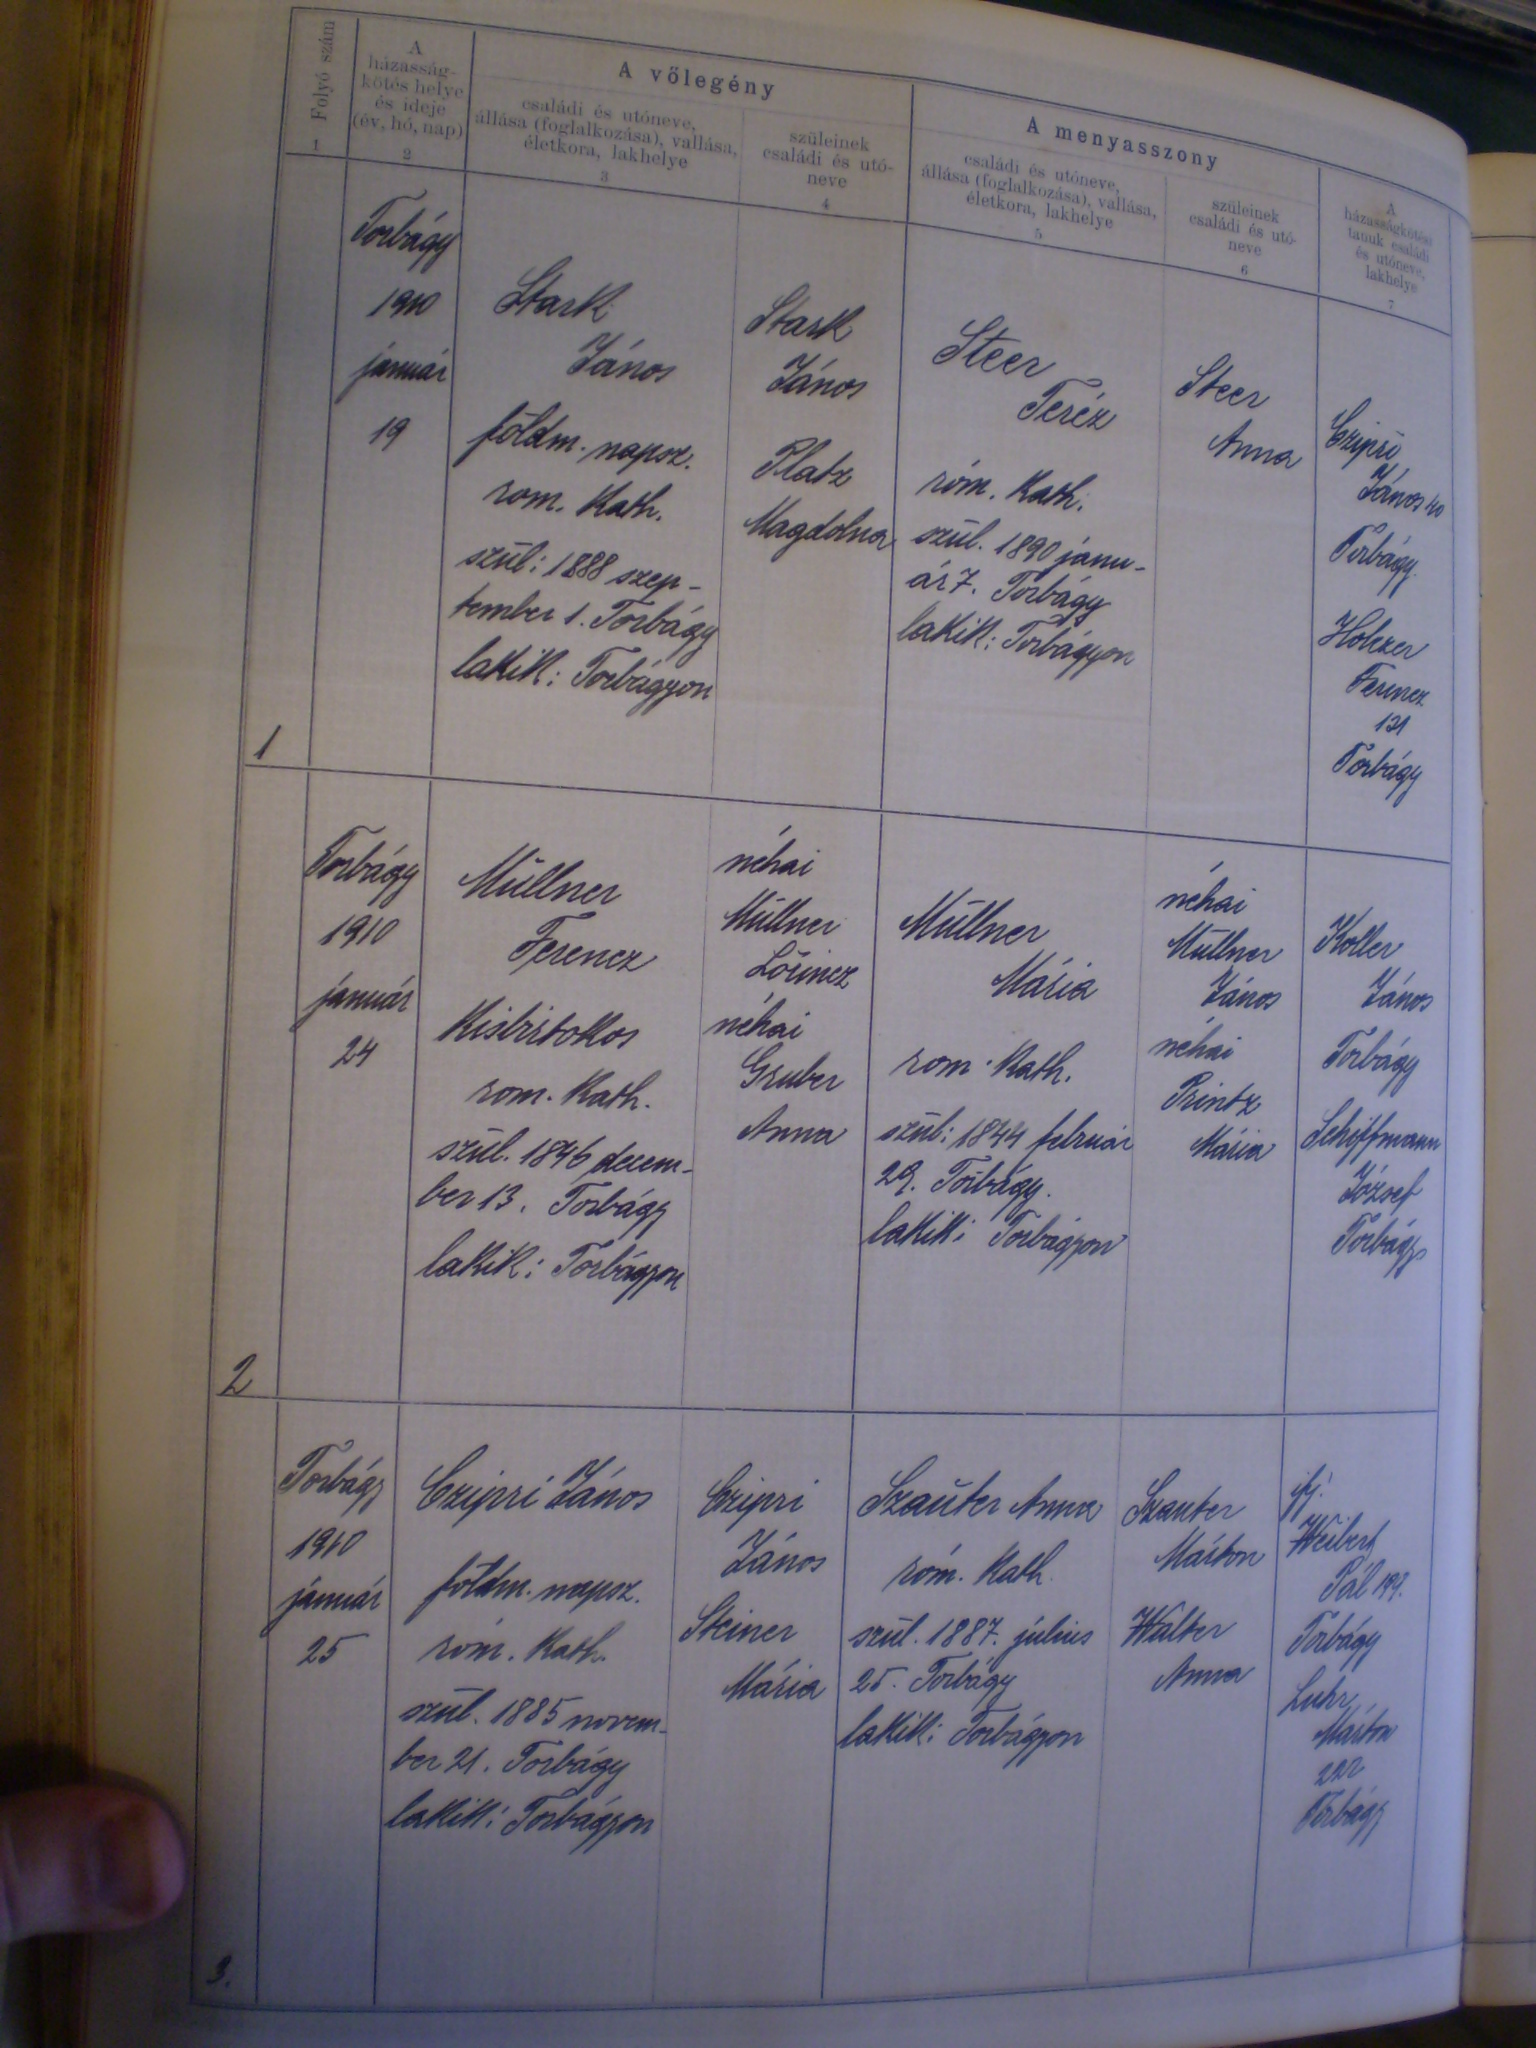 Folyó szám
1
A
házasság-
kötés helye
és ideje
(év, hó, nap)
2
A vőlegény
családi és utóneve,
állása (foglalkozása), vallása,
életkora, lakhelye
3
szüleinek
családi és utó-
neve
4
A menyasszony
családi és utóneve,
állása (foglalkozása), vallása,
életkora, lakhelye
5
szüleinek
családi és utó-
neve
6
A
házasságkötési
tanuk családi
és utóneve,
lakhelye
7
1
Torbágy
1910
január
19
Stark
János
földm. napsz.
rom. Kath.
szül: 1888 szep-
tember 1. Torbágy
lakik: Torbágyon
Stark
János
Platz
Magdolna
Steer
Teréz
róm. Kath.
szül. 1890 janu-
ár 7. Torbágy
lakik: Torbágyon
Steer
Anna
Czipri
János
Torbágy.
Holczer
Ferencz
121
Torbágy
2
Torbágy
1910
január
24
Müllner
Ferencz
Kisbirtokos
rom. Kath.
szül. 1846 decem-
ber 13. Torbágy
lakik: Torbágyon
néhai
Müllner
Lőrincz
néhai
Gruber
Anna
Müllner
Mária
rom. Kath.
szül: 1844 február
29. Torbágy.
lakik: Torbágyon
néhai
Müllner
János
néhai
Printz
Mária
Koller
János
Torbágy
Schiffmann
József
Torbágy
3.
Torbágy
1910
január
25
Czipri János
földm. napsz.
róm. Kath.
szül. 1885 novem-
ber 21. Torbágy
lakik: Torbágyon
Czipri
János
Steiner
Mária
Szauter Anna
róm. Kath.
szül. 1887. július
25. Torbágy
lakik: Torbágyon
Szauter
Márton
Walter
Anna
ifj.
Pál
Torbágy
Luhr
Márton
Torbágy